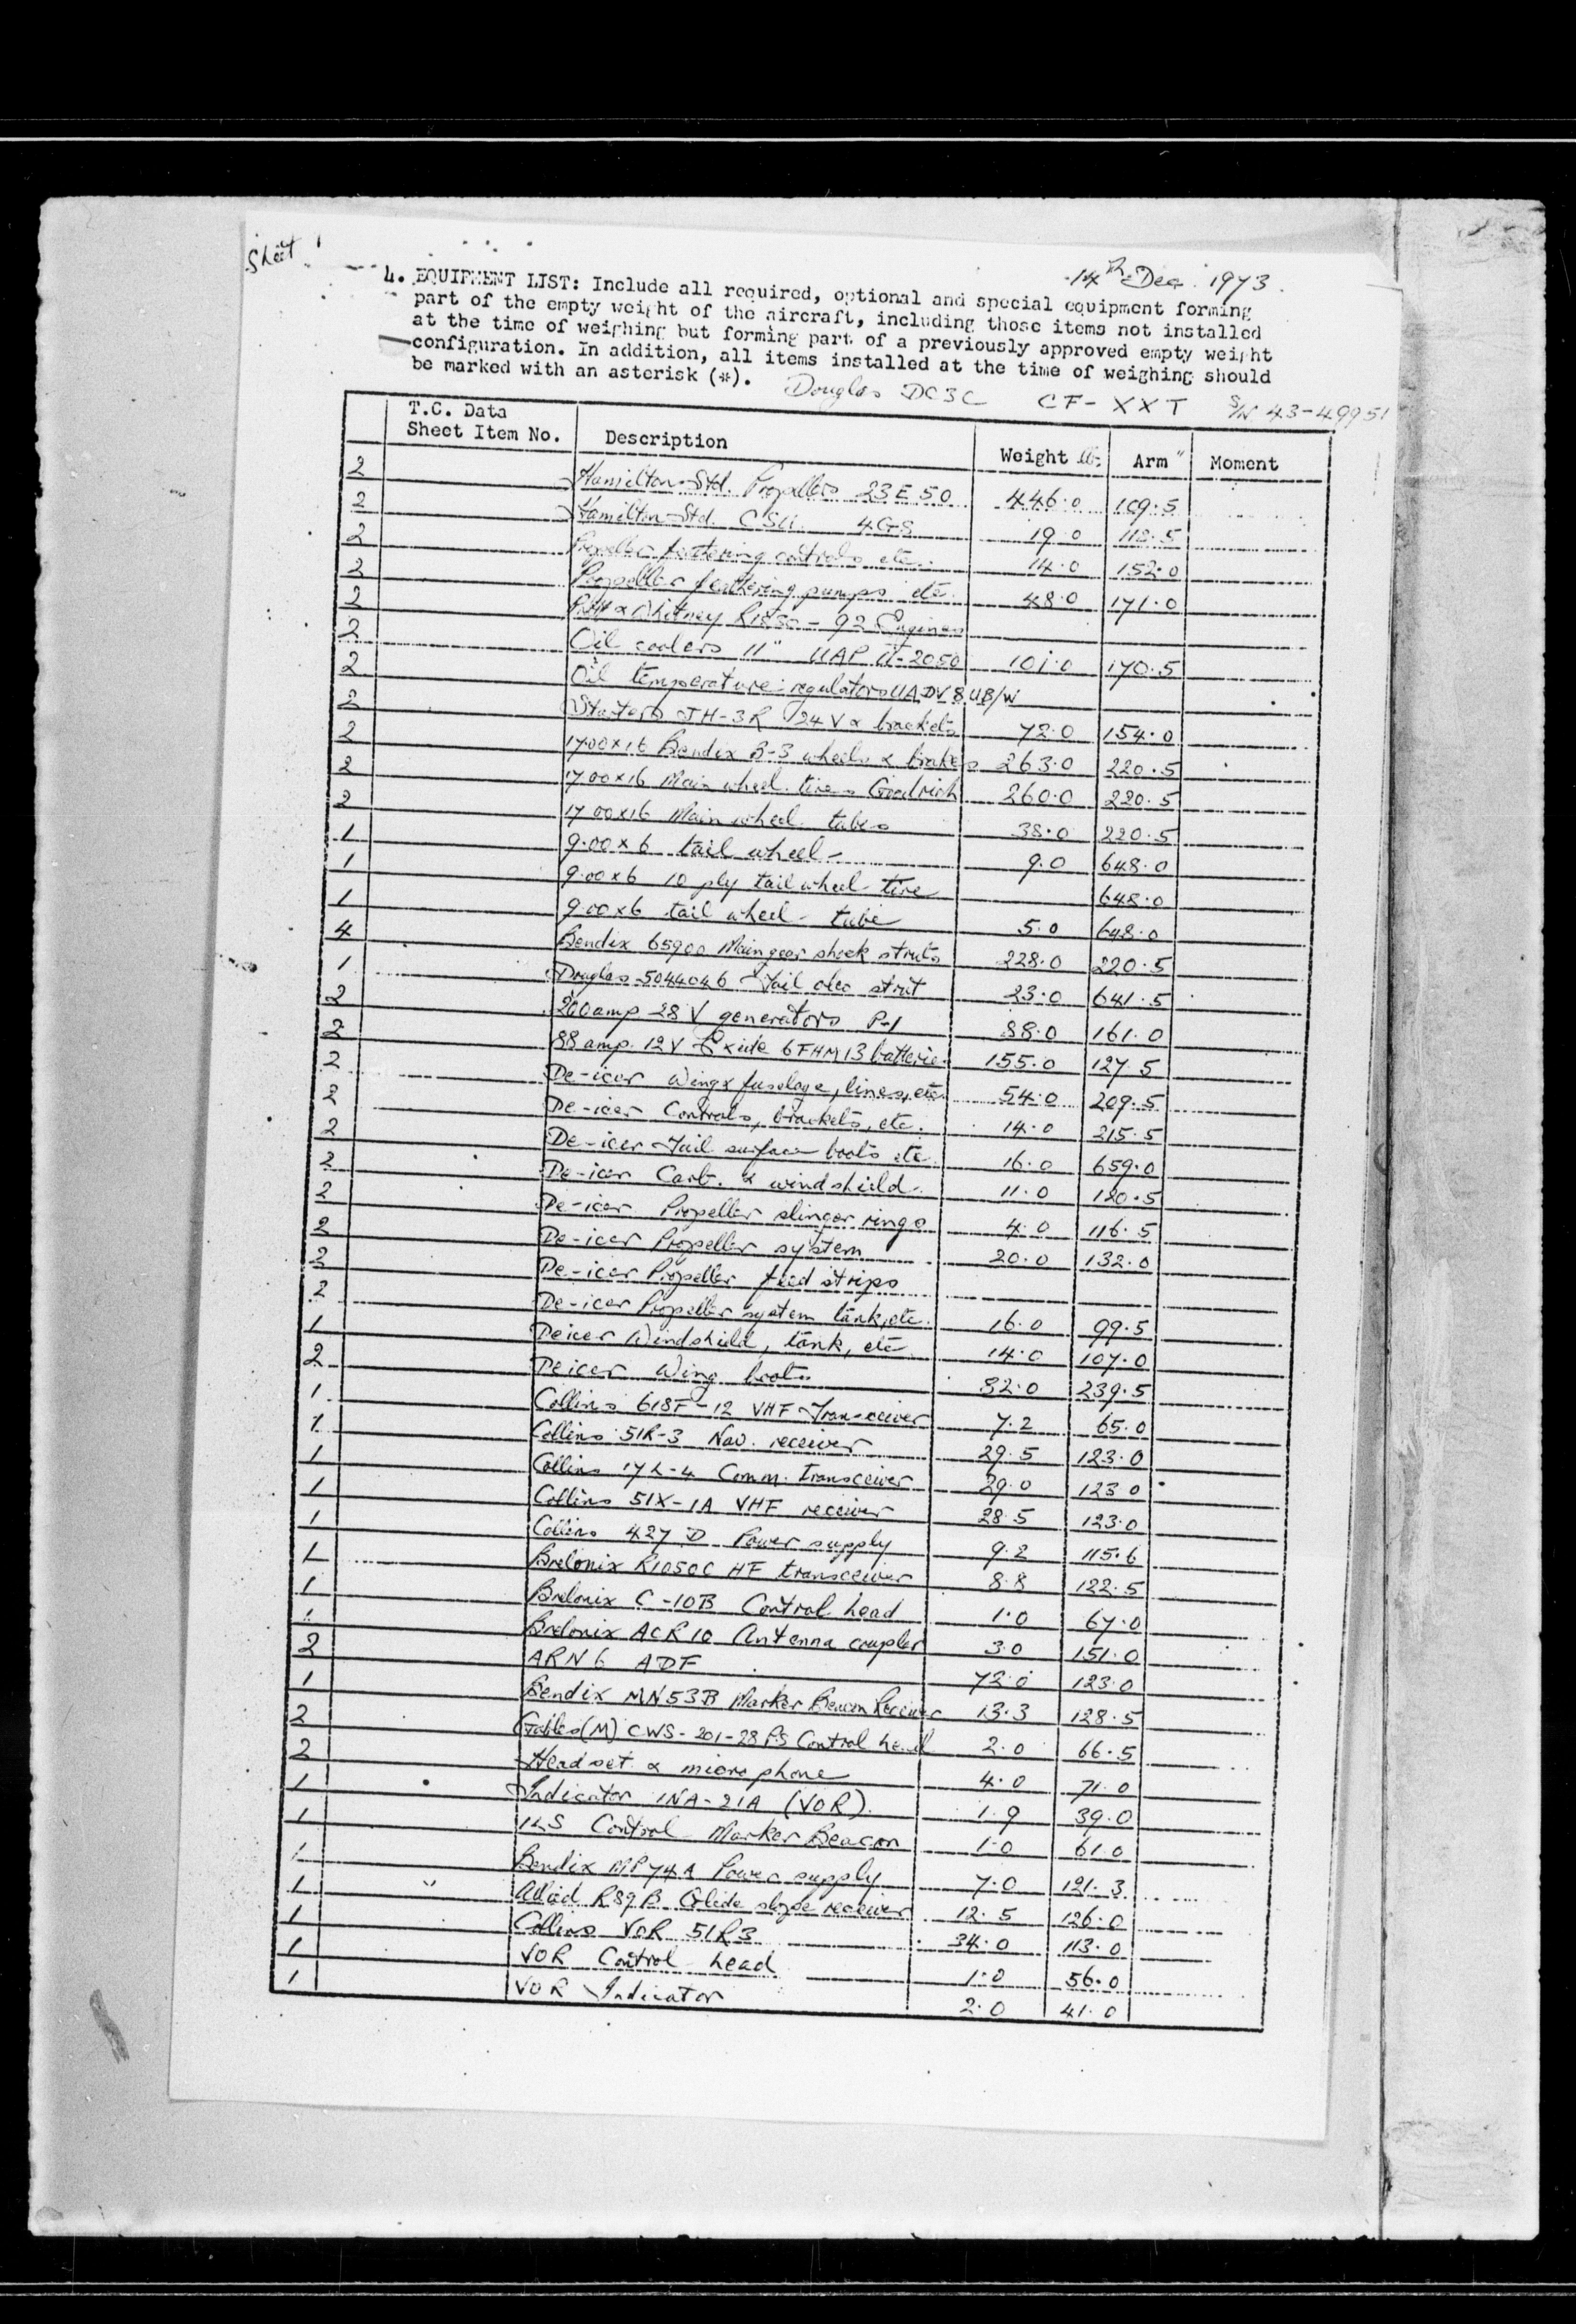 Sheet 1
14th Dec. 1973.
4. EQUIPMENT LIST: Include all required, optional and special equipment forming
part of the empty weight of the aircraft, including those items not installed
at the time of weighing but forming part of a previously approved empty weight
configuration. In addition, all items installed at the time of weighing should
be marked with an asterisk (*).
Douglas DC3C CF-XXT S/N 43-49951
T.C. Data
Sheet Item No. Description Weight lb. Arm" Moment
2 Hamilton-Std. Propellers 23E50 446.0 109.5
2 Hamilton-Std. CSU 4G8 19.0 112.5
2 Propeller feathering controls etc. 14.0 152.0
2 Propeller feathering pumps etc. 48.0 171.0
2 Pratt & Whitney R1830-92 Engines
2 Oil coolers 11" UAP U-2050 101.0 170.5
2 Oil temperature regulators UADV8UB/W
2 Starters JH-3R 24V & brackets 72.0 154.0
2 17.00x16 Bendix B-3 wheels & Brakes 263.0 220.5
2 17.00x16 Main wheel tires Goodrich 260.0 220.5
2 17.00x16 Main wheel tubes 38.0 220.5
1 9.00x6 tail wheel 9.0 648.0
1 9.00x6 10 ply tail wheel tire 648.0
1 9.00x6 tail wheel tube 5.0 648.0
4 Bendix 65900 Main gear shock struts 228.0 220.5
1 Douglas 5044046 Tail oleo strut 23.0 641.5
2 200amp 28V generators P-1 88.0 161.0
2 88 amp. 12V Exide 6FHM13 batteries 155.0 127.5
2 De-icer Wing & fuselage, lines, etc. 54.0 209.5
2 De-icer Controls, brackets, etc. 14.0 215.5
2 De-icer Tail surface boots etc. 16.0 659.0
2 De-icer Carb. & windshield. 11.0 120.5
2 De-icer Propeller slinger rings 4.0 116.5
2 De-icer Propeller system 20.0 132.0
2 De-icer Propeller feed strips
2 De-icer Propeller system tank, etc. 16.0 99.5
1 Deicer Windshield, tank, etc. 14.0 107.0
2 Deicer Wing boots 32.0 239.5
1 Collins 618F-12 VHF Transceiver 7.2 65.0
1 Collins 51R-3 Nav. receiver 29.5 123.0
1 Collins 17L-4 Comm. transceiver 29.0 123.0
1 Collins 51X-1A VHF receiver 28.5 123.0
1 Collins 427 D Power supply 9.2 115.6
1 Brelonix R1050C HF transceiver 8.8 122.5
1 Brelonix C-10B Control head 1.0 67.0
1 Brelonix ACR10 Antenna coupler 3.0 151.0
2 ARN6 ADF 72.0 123.0
1 Bendix MN53B Marker Beacon Receiver 13.3 128.5
2 Gables(M) CWS-201-28 PS Control head 2.0 66.5
2 Headset & microphone 4.0 71.0
1 Indicator INA-21A (VOR). 1.9 39.0
1 ILS Control Marker Beacon 1.0 61.0
1 Bendix MP74A Power supply 7.0 121.3
1 " Allied R89B Glide slope receiver 12.5 126.0
1 Collins VOR 51R3 34.0 113.0
1 VOR Control head 1.0 56.0
1 VOR Indicator 2.0 41.0